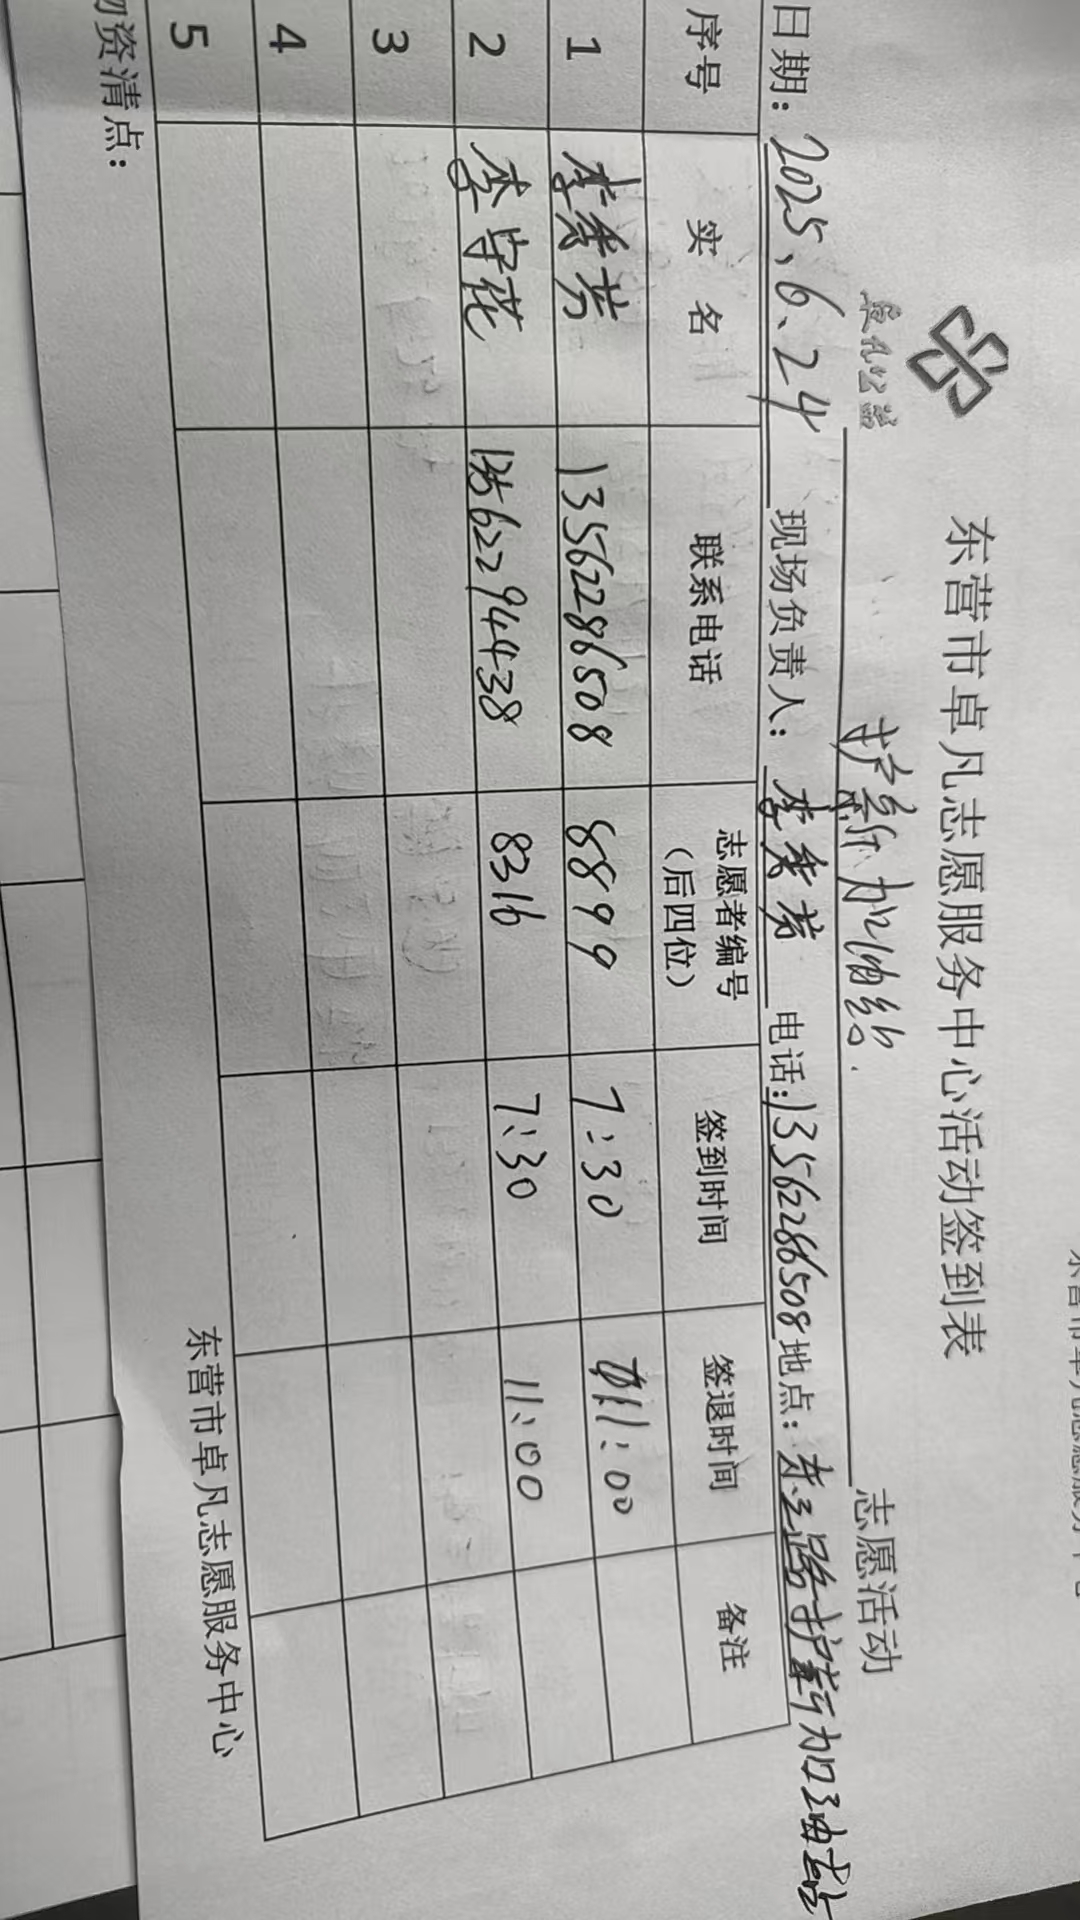 卓凡公益
东营市卓凡志愿服务中心活动签到表
护新加油站 志愿活动
日期：2025、6、24 现场负责人：李秀芳 电话：13562286508 地点：东三路护新加油站
序号 实名 联系电话 志愿者编号（后四位） 签到时间 签退时间 备注
1 李秀芳 13562286508 8899 7:30 11:00
2 李守花 13562294438 8316 7:30 11:00
3
4
5
资清点：
东营市卓凡志愿服务中心